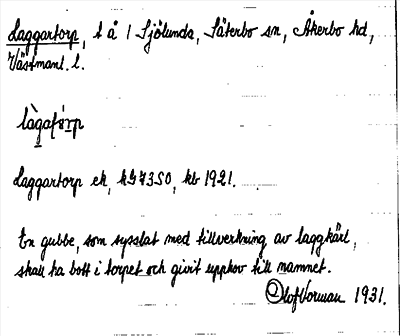 Laggartorp, t å 1 Sjölunda, Säterbo sn, Åkerbo hd,
Västmanl. l.
làgatórp
Laggartorp ek, kb 1921.
En gubbe, som sysslat med tillverkning av laggkärl,
skall ha bott i torpet och givit upphov till namnet.
Olof Vorman 1931.